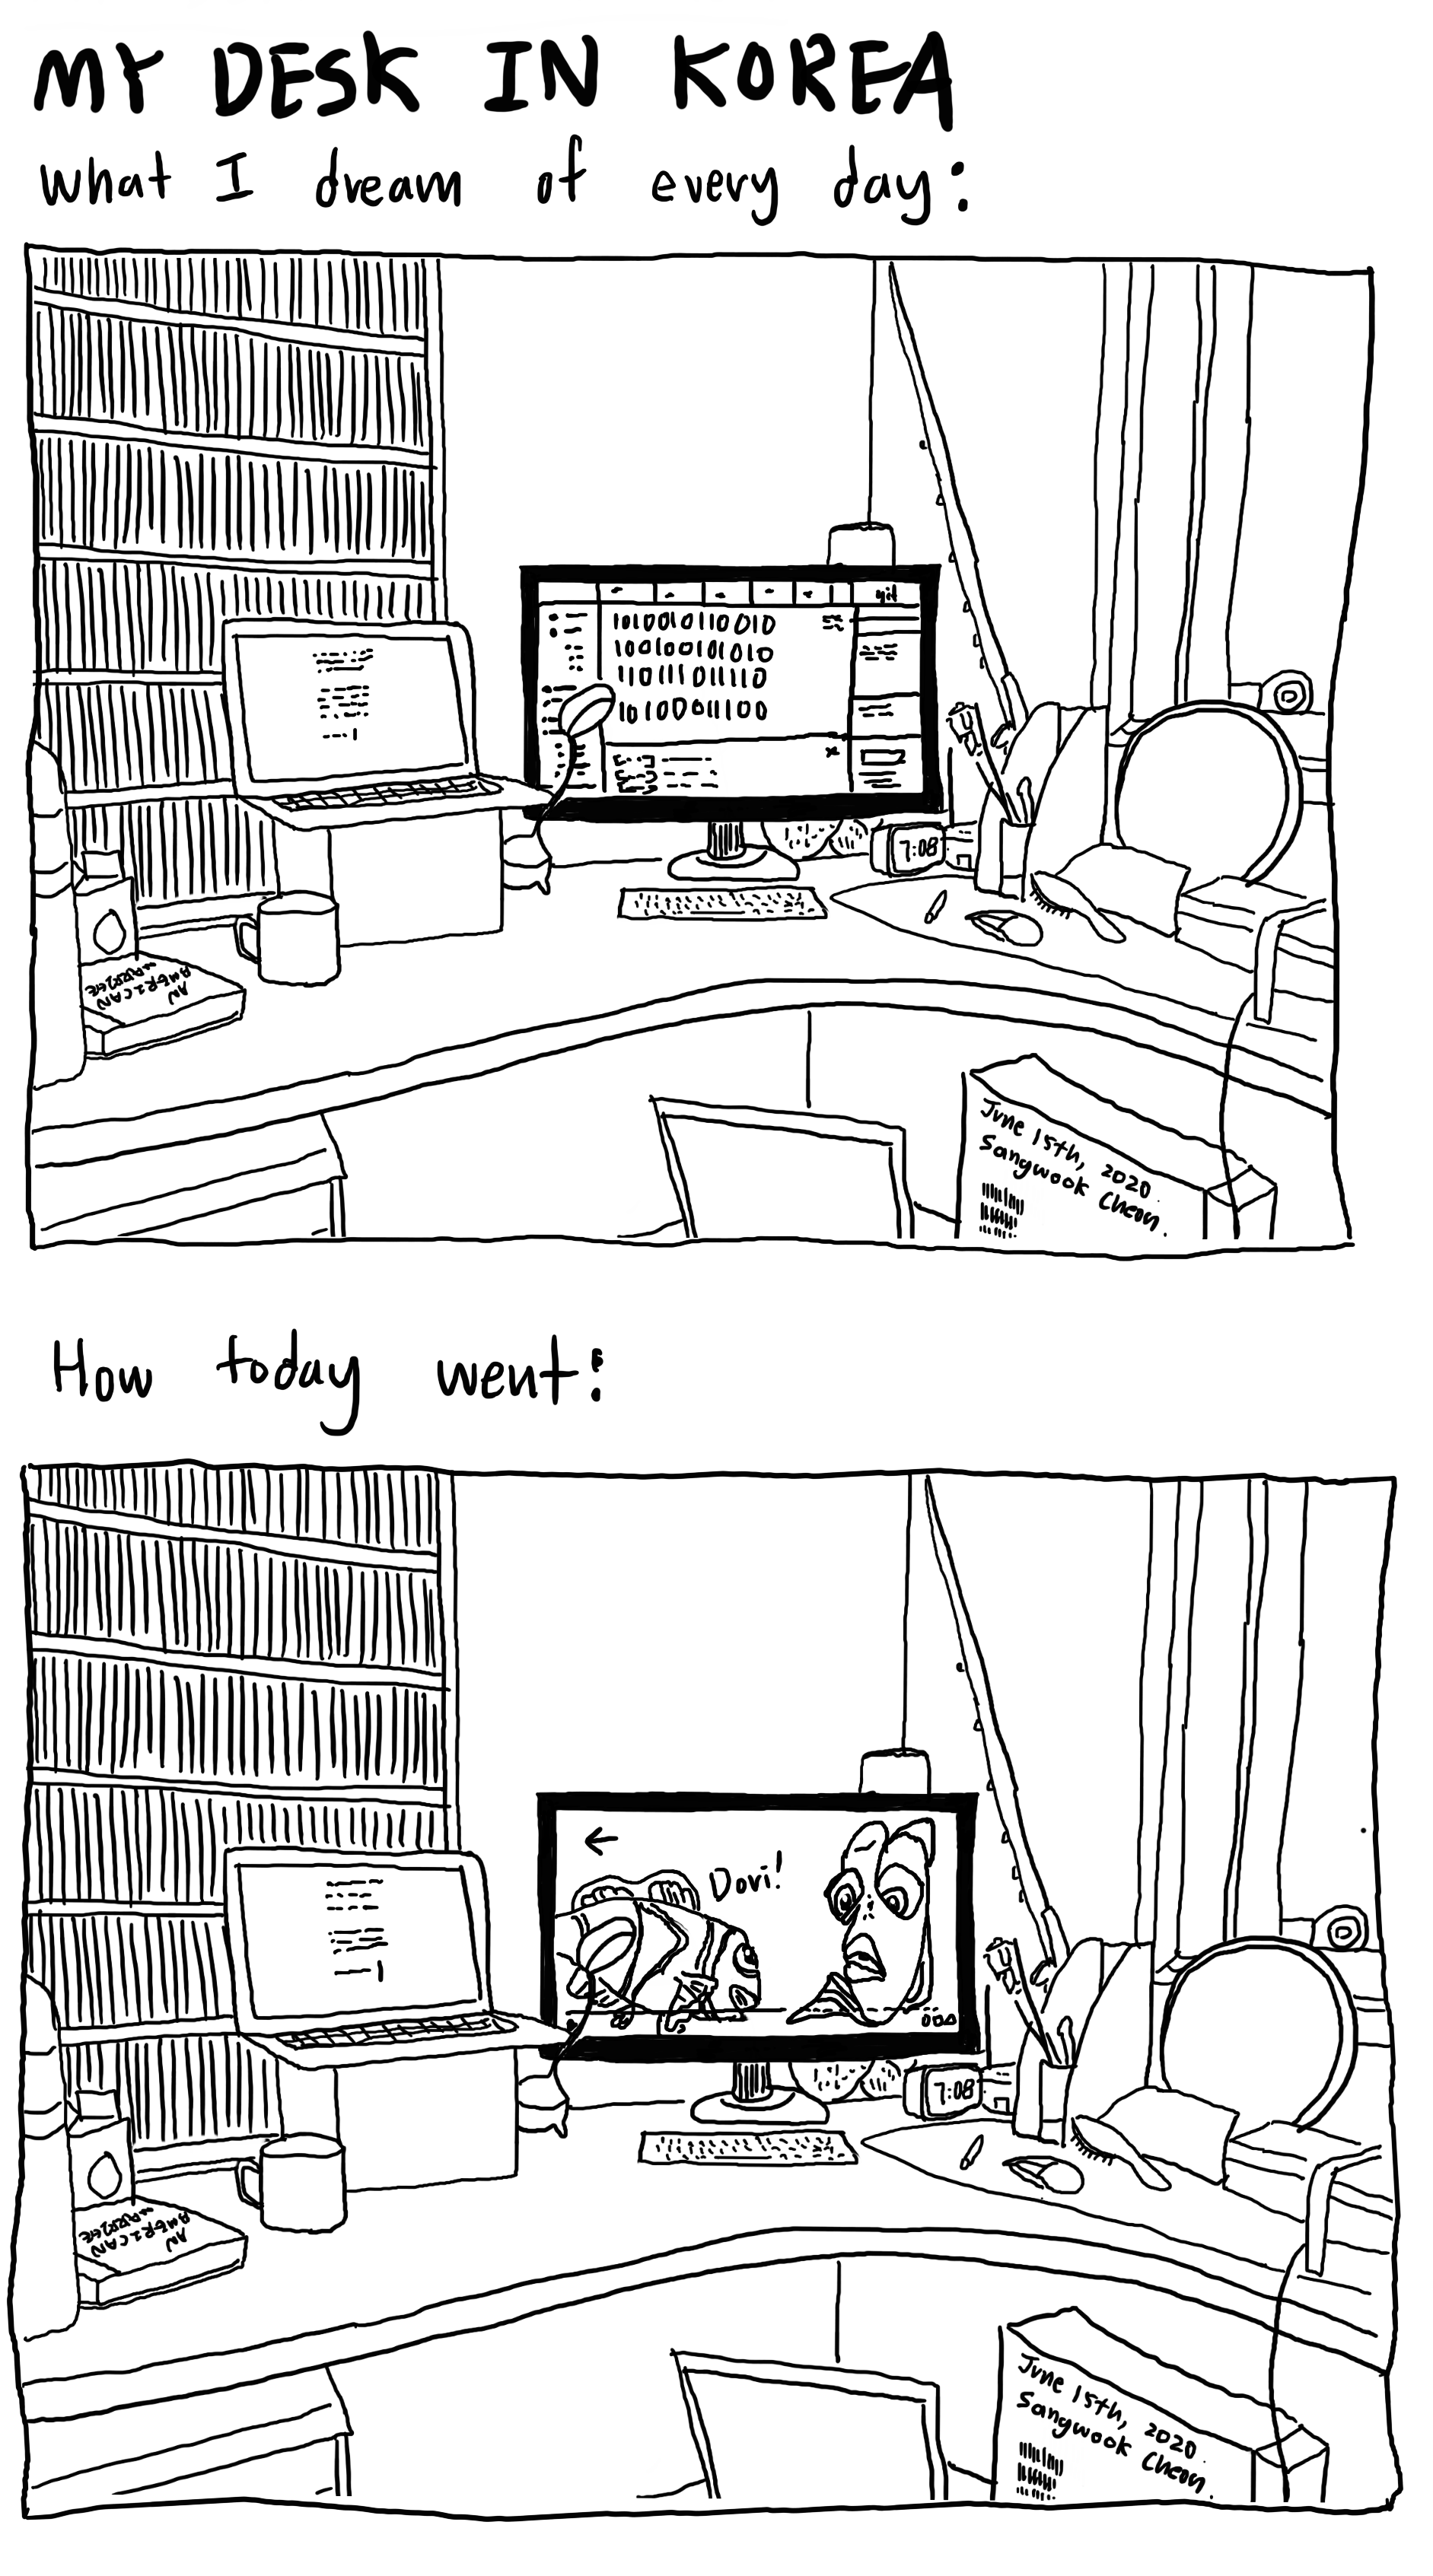 MY DESK IN KOREA
what I dream of every day:
git
10100010110010
100100101010
1101111011110
10100011100
7:08
AN
AMERICAN
MARRIAGE
June 15th, 2020
Sangwook Cheon.
How today went:
Dori!
7:08
AN
AMERICAN
MARRIAGE
June 15th, 2020
Sangwook Cheon.